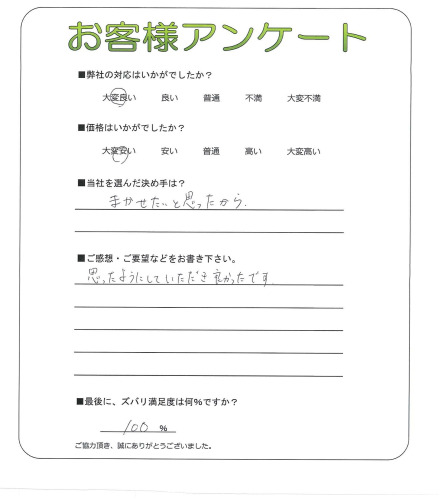 お客様アンケート
■弊社の対応はいかがでしたか？
大変良い 良い 普通 不満 大変不満
■価格はいかがでしたか？
大変安い 安い 普通 高い 大変高い
■当社を選んだ決め手は？
まかせたいと思ったから.
■ご感想・ご要望などをお書き下さい。
思ったようにしていただき良かったです.
■最後に、ズバリ満足度は何％ですか？
100 %
ご協力頂き、誠にありがとうございました。